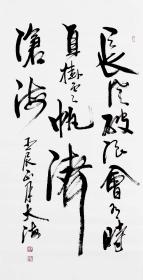 長風破浪會有時
直掛雲帆濟
滄海
壬辰年大海